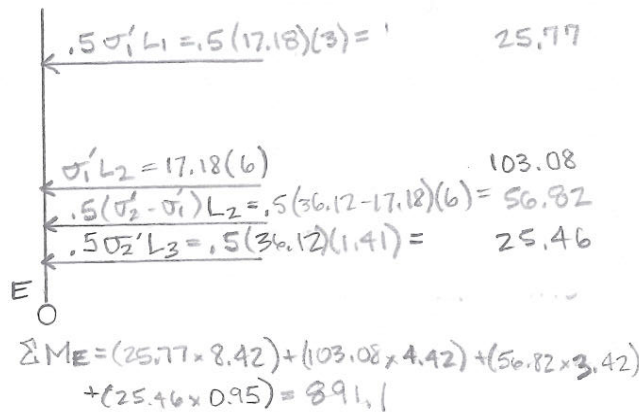 .5σ₁'L₁ = .5(17.18)(3) = 25.77
σ₁'L₂ = 17.18(6) 103.08
.5(σ₂'-σ₁')L₂ = .5(36.12-17.18)(6) = 56.82
.5σ₂'L₃ = .5(36.12)(1.41) = 25.46
E
ΣME = (25.77×8.42)+(103.08×4.42)+(56.82×3.42)
+(25.46×0.95) = 891.1